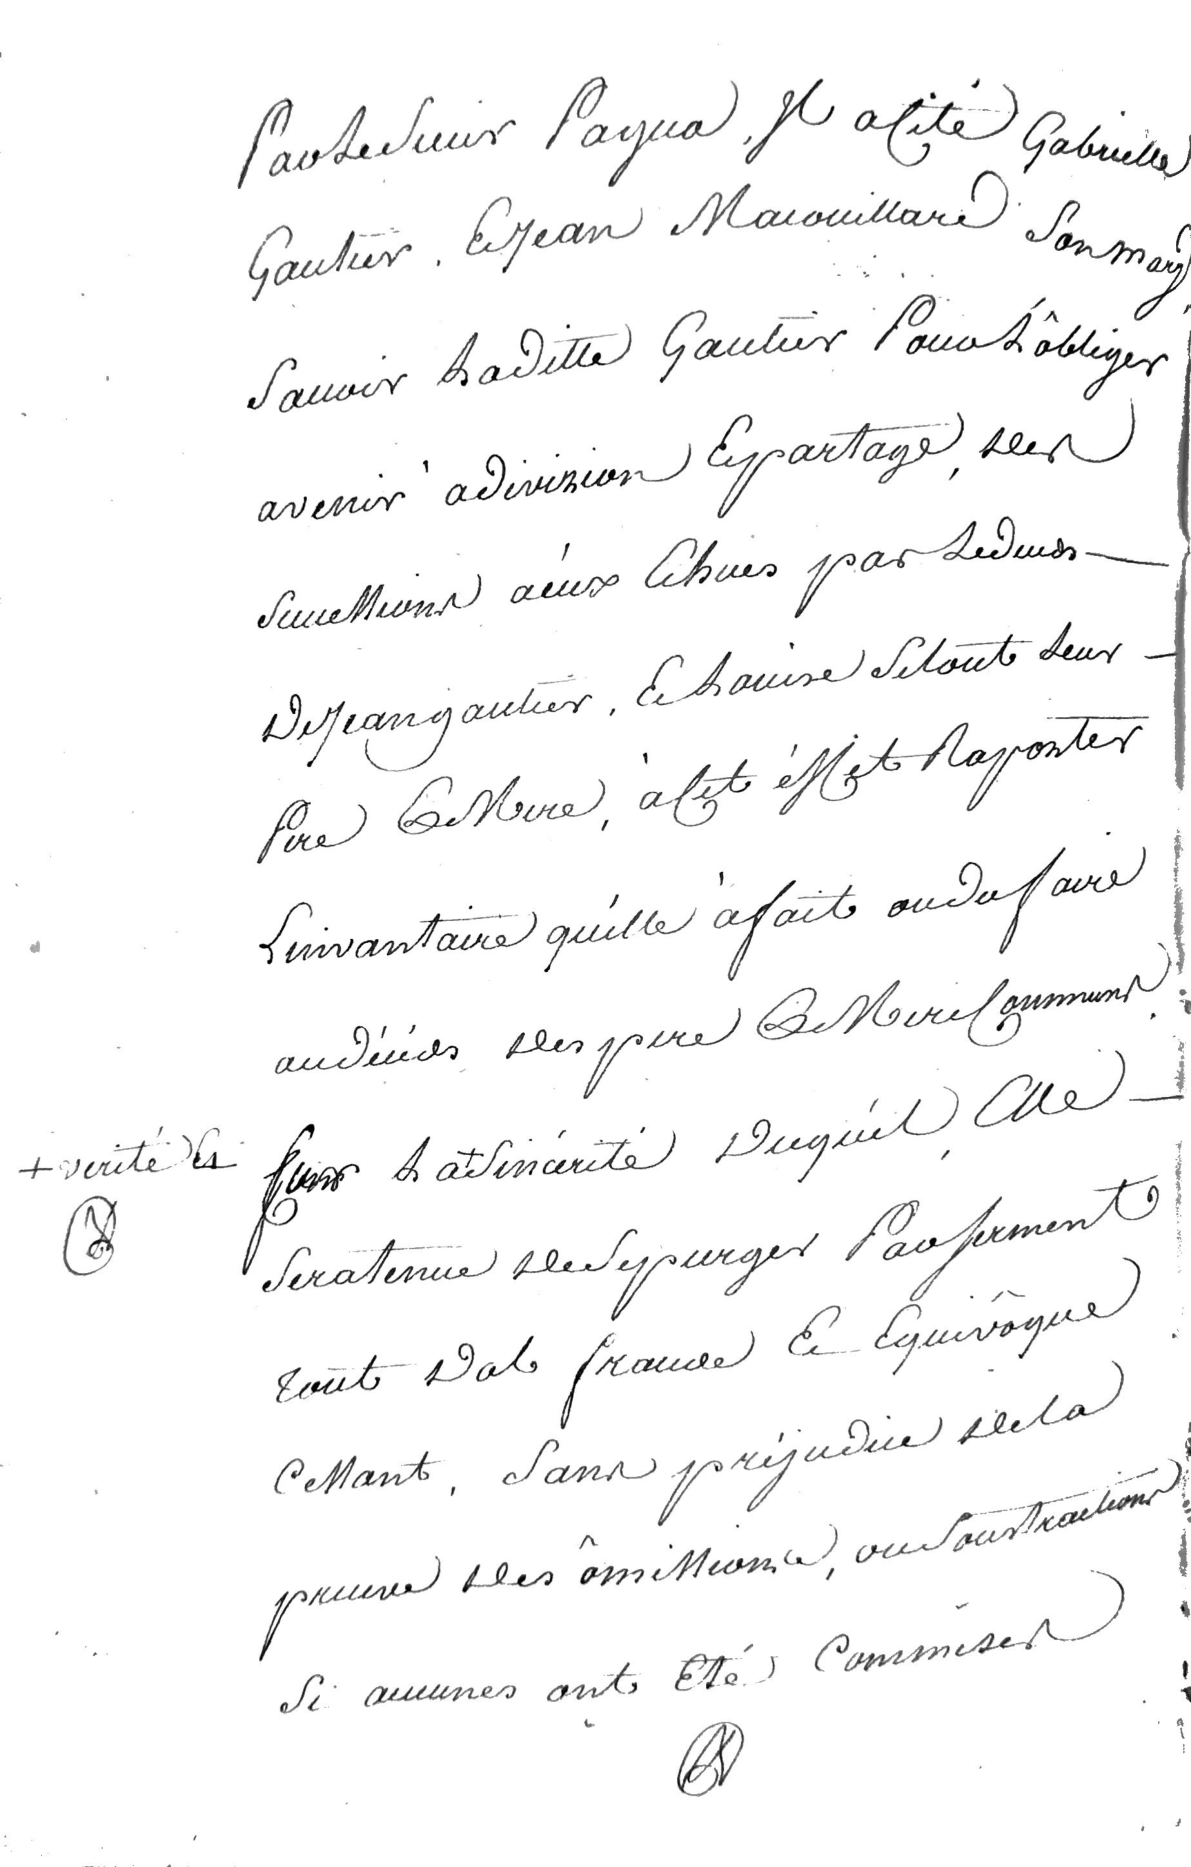 Par le Sieur Pagna, Il a Cité Gabrielle
Gautier. Et Jean Macouillard Son mary
Savoir La ditte Gautier Pour L'ôbliger
avenir a divizion Et partage, des
Successions a éux Echues par Le deces
De Jean gautier, Et Louise Sutout Leur
Pere Et Mere, à Cet éffet Raporter
L'invantaire qu'elle à fait ou du faire
au déces des pere Et Mere Communs
+ verité Et
Sur La + Sincérité Duquél, Elle
Sera tenue de Se purger Par Serment
tout Dol fraude Et Equivôque
Cessant, Sans préjudice de la
preuve des ômissions, ou Soustractions
Si aucunes ont Eté Commises